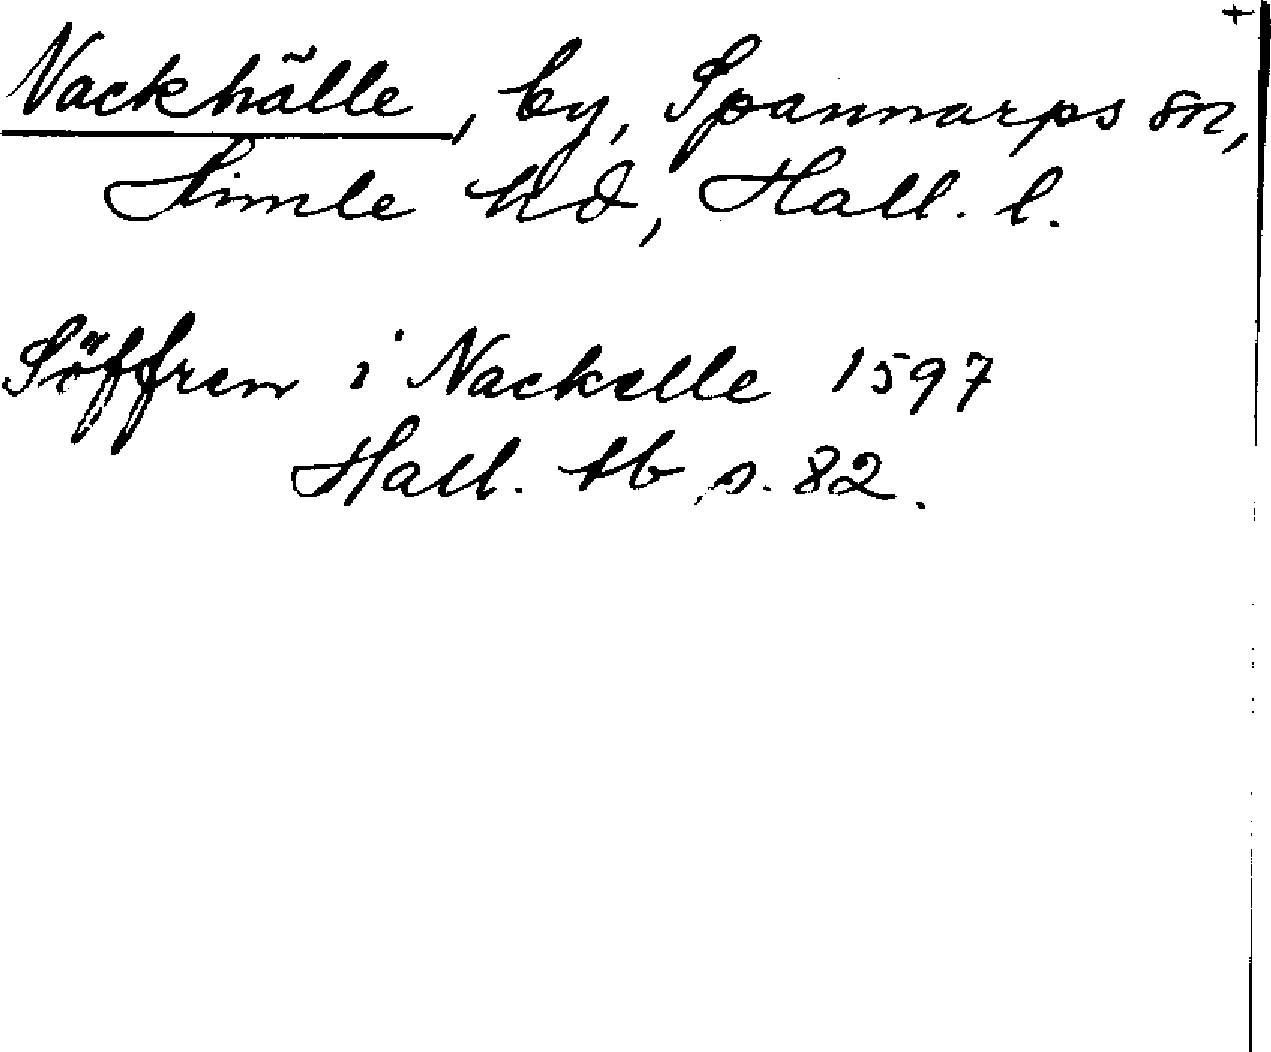 Nackhälle, by, Spannarps sn,
Himle hd, Hall. l.
Söffren i Nackelle 1597
Hall. tb s. 82.